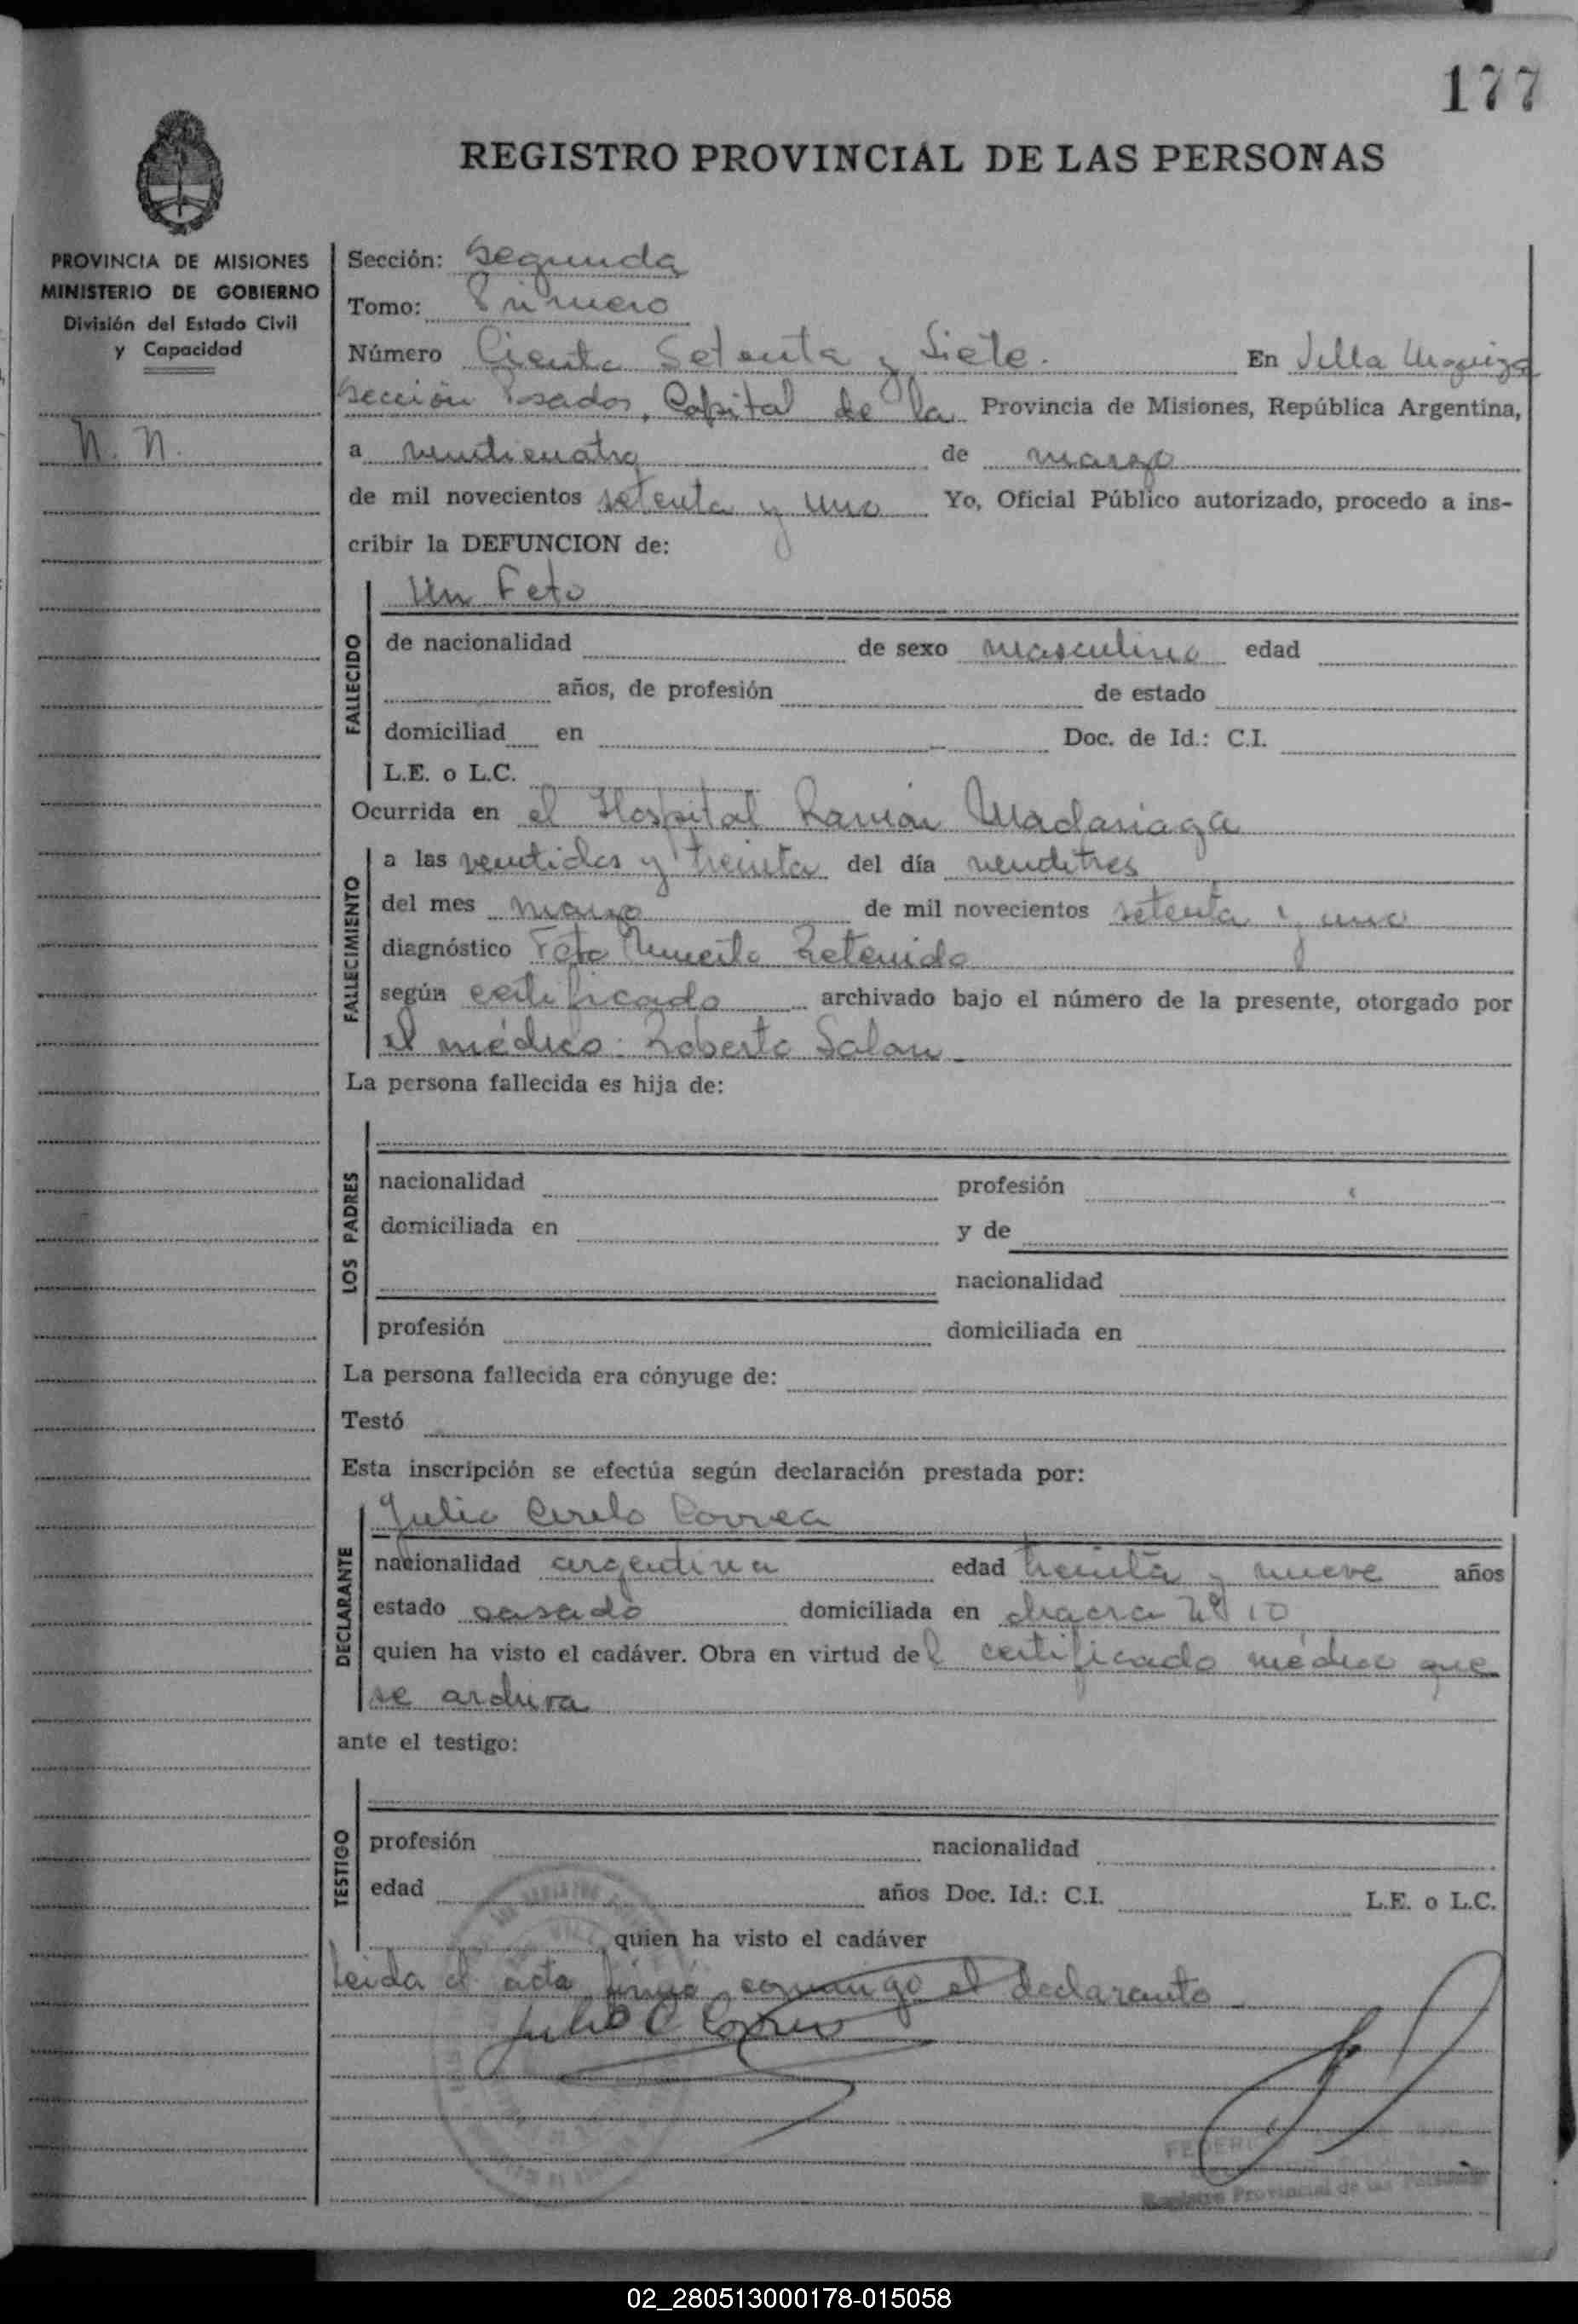 177
REGISTRO PROVINCIAL DE LAS PERSONAS
PROVINCIA DE MISIONES
MINISTERIO DE GOBIERNO
División del Estado Civil
y Capacidad
N. N.
Sección: Segunda
Tomo: Primero
Número Ciento Setenta y Siete. En Villa Urquiza
Sección Posadas, Capital de la Provincia de Misiones, República Argentina,
a venticuatro de marzo
de mil novecientos setenta y uno Yo, Oficial Público autorizado, procedo a ins-
cribir la DEFUNCION de:
FALLECIDO
Un Feto
de nacionalidad de sexo masculino edad
años, de profesión de estado
domiciliad en Doc. de Id.: C.I.
L.E. o L.C.
Ocurrida en el Hospital Ramón Madariaga
FALLECIMIENTO
a las ventidos y treinta del día ventitres
del mes marzo de mil novecientos setenta y uno
diagnóstico Feto Muerto Retenido
según certificado archivado bajo el número de la presente, otorgado por
el médico: Roberto Salom
La persona fallecida es hija de:
LOS PADRES
nacionalidad profesión
domiciliada en y de
nacionalidad
profesión domiciliada en
La persona fallecida era cónyuge de:
Testó
Esta inscripción se efectúa según declaración prestada por:
DECLARANTE
Julio Cirilo Correa
nacionalidad argentina edad treinta y nueve años
estado casado domiciliada en chacra Nº 10
quien ha visto el cadáver. Obra en virtud del certificado médico que
se archiva
ante el testigo:
TESTIGO
profesión nacionalidad
edad años Doc. Id.: C.I. L.E. o L.C.
quien ha visto el cadáver
Leida el acta firmó conmigo el declarante
Julio C Correa
Registro Provincial de las Personas
02_280513000178-015058